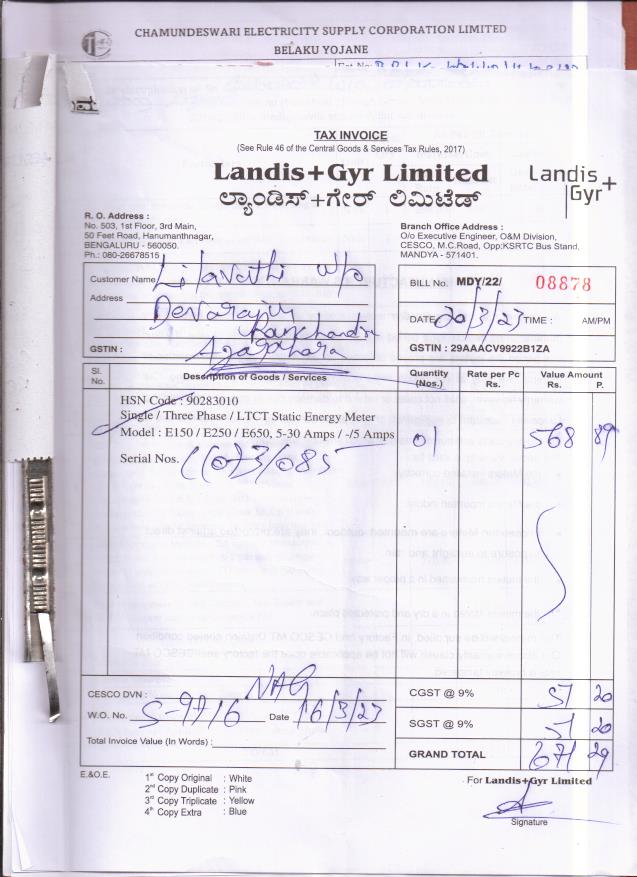 CHAMUNDESWARI ELECTRICITY SUPPLY CORPORATION LIMITED
BELAKU YOJANE
TAX INVOICE
(See Rule 46 of the Central Goods & Services Tax Rules, 2017)
Landis+Gyr Limited
Landis+
Gyr
ಲ್ಯಾಂಡಿಸ್+ಗೇರ್ ಲಿಮಿಟೆಡ್
R. O. Address :
No. 503, 1st Floor, 3rd Main,
50 Feet Road, Hanumanthnagar,
BENGALURU - 560050.
Ph.: 080-26678515
Branch Office Address :
O/o Executive Engineer, O&M Division,
CESCO, M.C.Road, Opp:KSRTC Bus Stand,
MANDYA - 571401.
Customer Name Lilavathi w/o
Address Devaraju
Ramchandra
Agrahara
GSTIN :
BILL No. MDY/22/ 08878
DATE 20/3/23 TIME : AM/PM
GSTIN : 29AAACV9922B1ZA
Sl. No. Description of Goods / Services Quantity (Nos.) Rate per Pc Rs. Value Amount Rs. P.
HSN Code : 90283010
Single / Three Phase / LTCT Static Energy Meter
Model : E150 / E250 / E650, 5-30 Amps / -/5 Amps 568 89
Serial Nos.
CESCO DVN : NAG
W.O. No. S-9716 Date 16/3/23
Total Invoice Value (In Words) :
CGST @ 9% 51 20
SGST @ 9% 51 20
GRAND TOTAL 671 29
E.&O.E.
1st Copy Original : White
2nd Copy Duplicate : Pink
3rd Copy Triplicate : Yellow
4th Copy Extra : Blue
For Landis+Gyr Limited
Signature